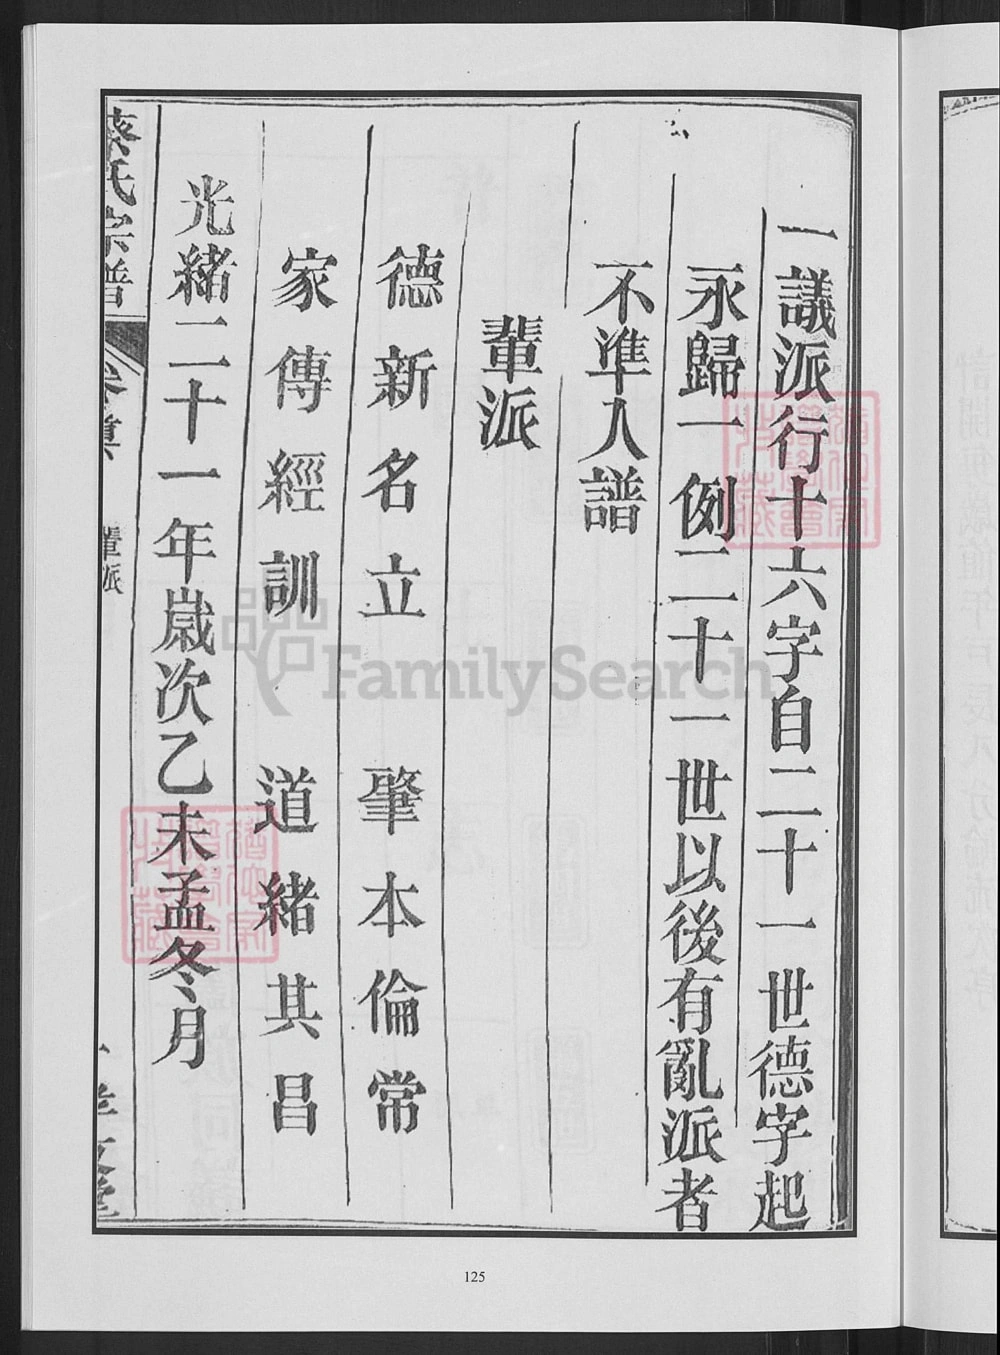 一議派行十六字自二十一世德字起
永歸一例二十一世以後有亂派者
不準入譜
輩派
德新名立 肇本倫常
家傳經訓 道緒其昌
光緒二十一年歲次乙未孟冬月
蔡氏宗譜
卷首
輩派
FamilySearch
125